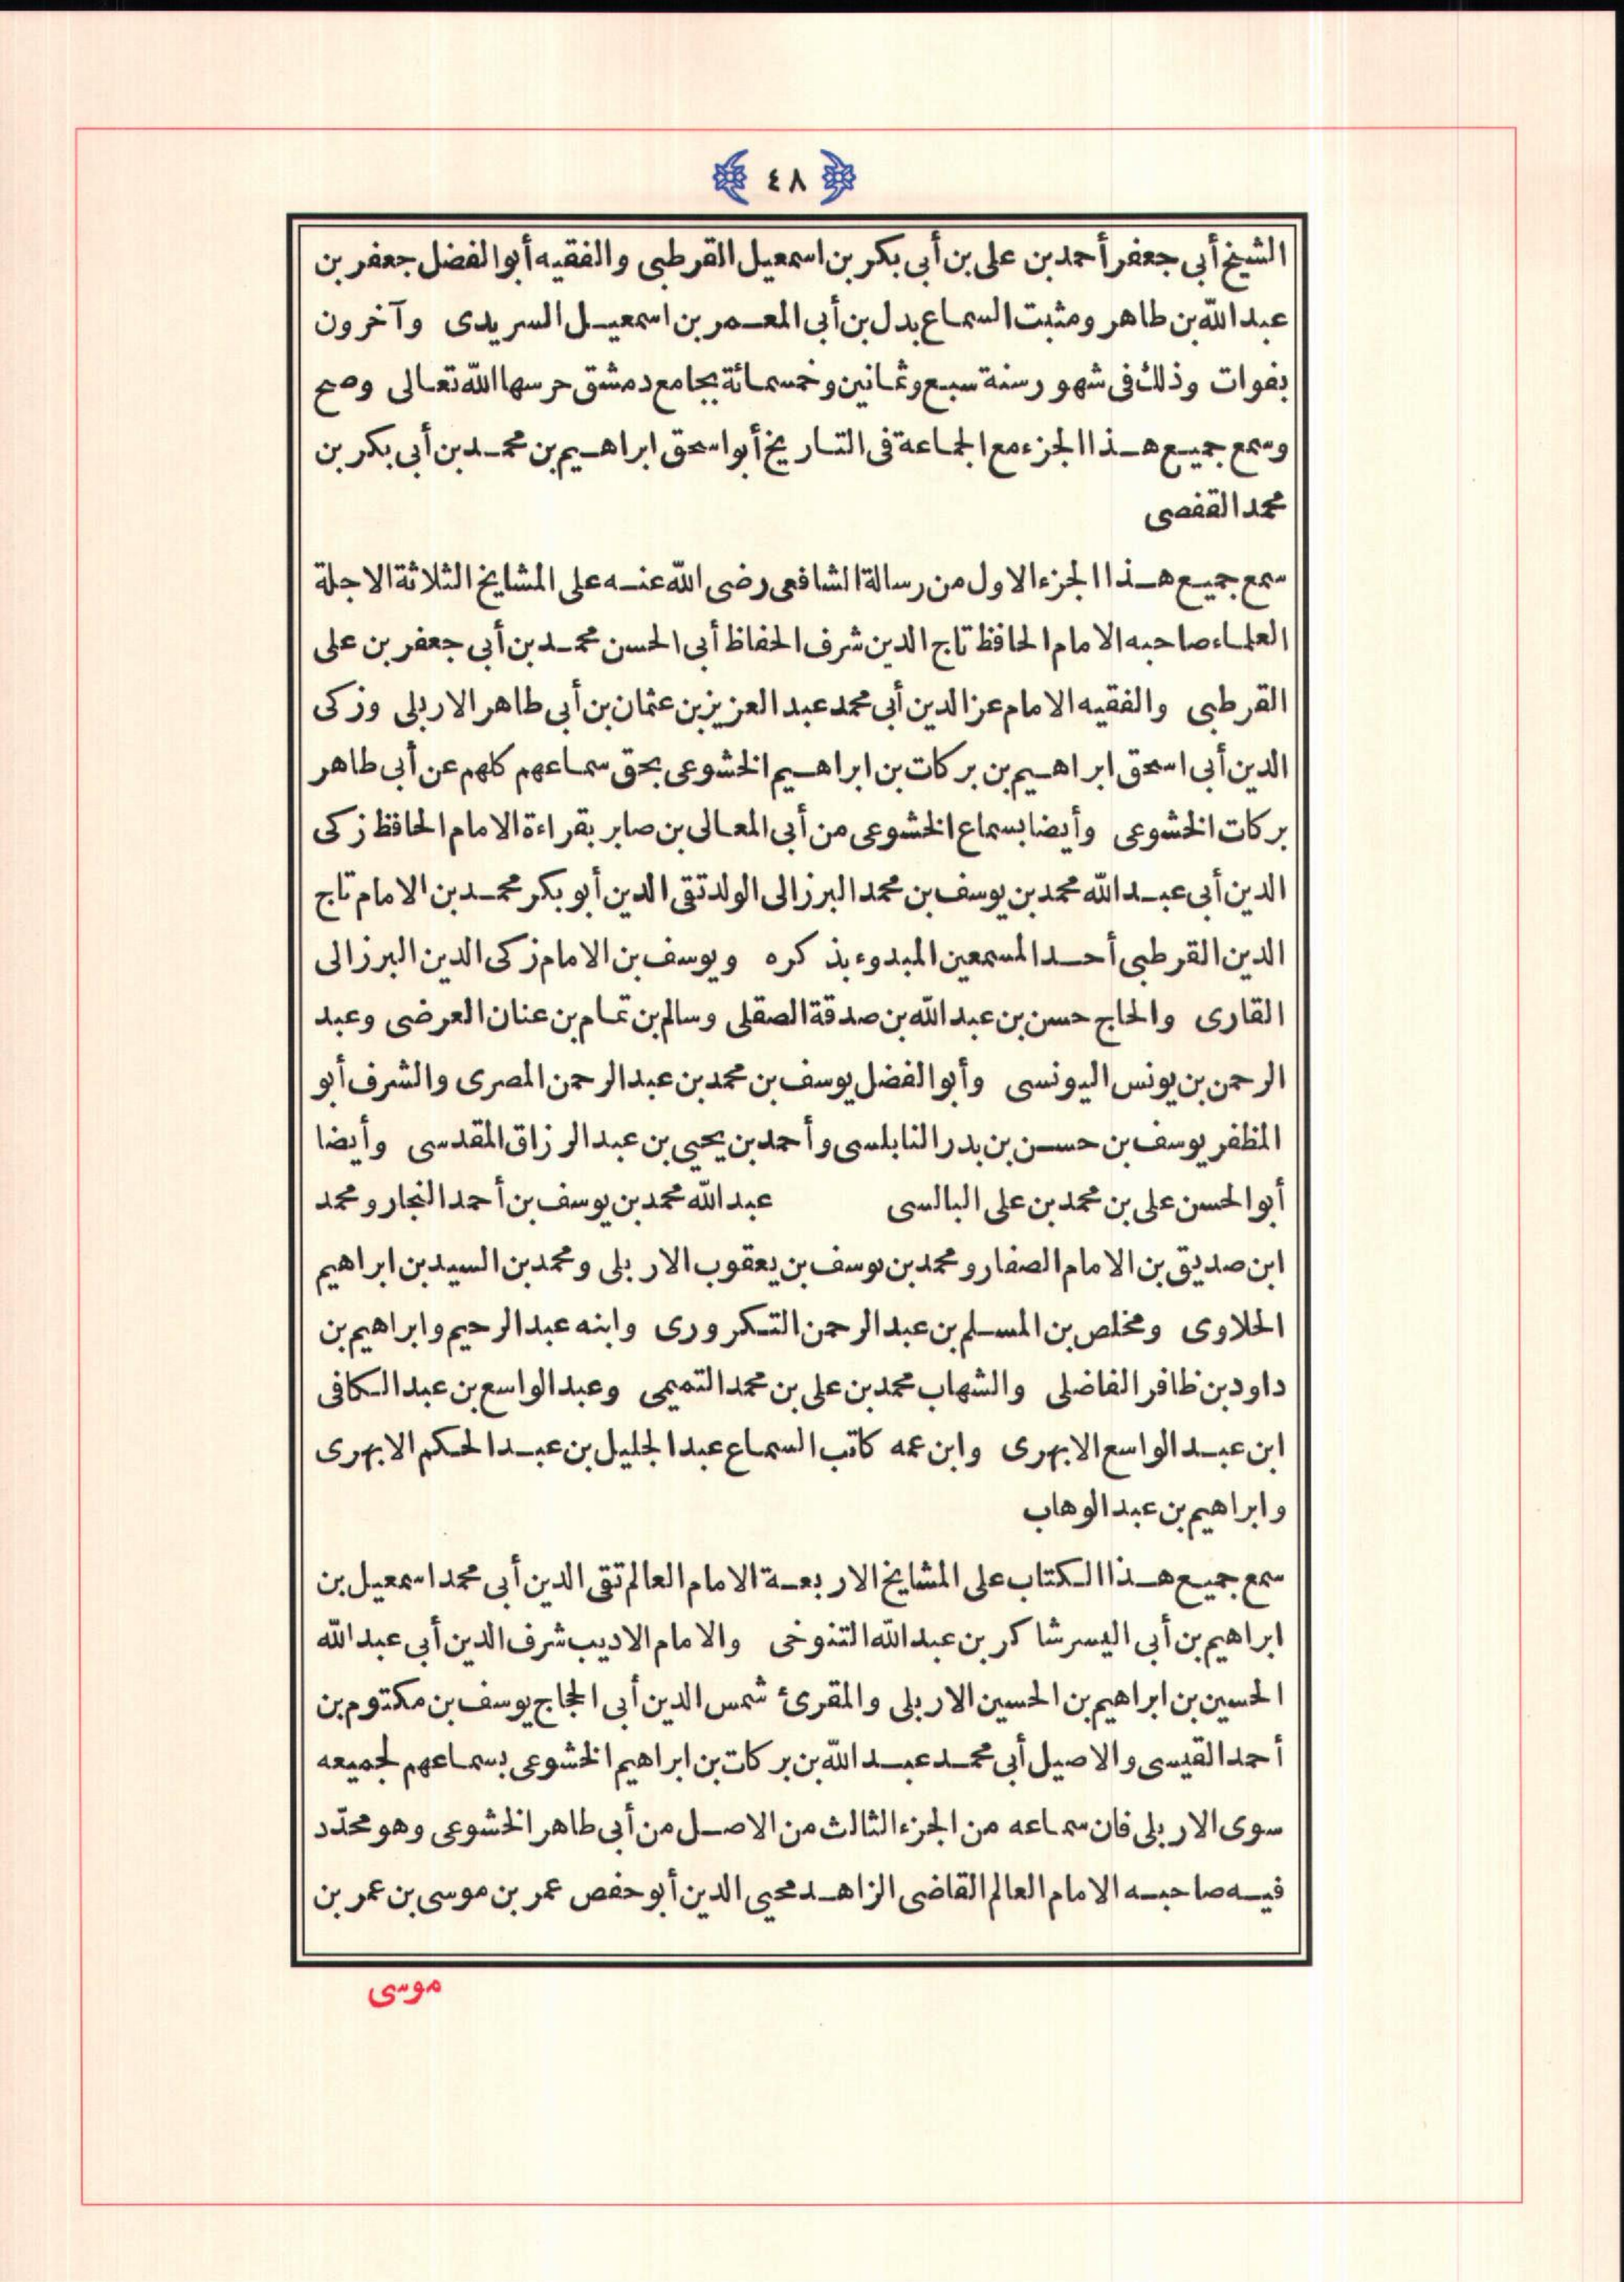 ٤٨
الشيخ أبى جعفر أحمد بن على بن أبى بكر بن اسمعيل القرطبى والفقيه أبو الفضل جعفر بن
عبد الله بن طاهر ومثبت السماع بدل بن أبى المعمر بن اسمعيل السريدى وآخرون
بفوات وذلك فى شهور سنة سبع وثمانين وخمسمائة بجامع دمشق حرسها الله تعالى وصح
وسمع جميع هذا الجزء مع الجماعة فى التاريخ أبو اسحق ابراهيم بن محمد بن أبى بكر بن
محمد القفصى
سمع جميع هذا الجزء الاول من رسالة الشافعى رضى الله عنه على المشايخ الثلاثة الاجلة
العلماء صاحبه الامام الحافظ تاج الدين شرف الحفاظ أبى الحسن محمد بن أبى جعفر بن على
القرطبى والفقيه الامام عز الدين أبى محمد عبد العزيز بن عثمان بن أبى طاهر الاربلى وزكى
الدين أبى اسحق ابراهيم بن بركات بن ابراهيم الخشوعى بحق سماعهم كلهم عن أبى طاهر
بركات الخشوعى وأيضا بسماع الخشوعى من أبى المعالى بن صابر بقراءة الامام الحافظ زكى
الدين أبى عبد الله محمد بن يوسف بن محمد البرزالى الولد تقى الدين أبو بكر محمد بن الامام تاج
الدين القرطبى أحد المسمعين المبدوء بذكره ويوسف بن الامام زكى الدين البرزالى
القارى والحاج حسن بن عبد الله بن صدقة الصقلى وسالم بن تمام بن عنان العرضى وعبد
الرحمن بن يونس اليونسى وأبو الفضل يوسف بن محمد بن عبد الرحمن المصرى والشرف أبو
المظفر يوسف بن حسن بن بدر النابلسى وأحمد بن يحيى بن عبد الرزاق المقدسى وأيضا
أبو الحسن على بن محمد بن على البالسى عبد الله محمد بن يوسف بن أحمد النجار ومحمد
ابن صديق بن الامام الصفار ومحمد بن يوسف بن يعقوب الاربلى ومحمد بن السيد بن ابراهيم
الحلاوى ومخلص بن المسلم بن عبد الرحمن التكرورى وابنه عبد الرحيم وابراهيم بن
داود بن ظافر الفاضلى والشهاب محمد بن على بن محمد التميمى وعبد الواسع بن عبد الكافى
ابن عبد الواسع الابهرى وابن عمه كاتب السماع عبد الجليل بن عبد الحكم الابهرى
وابراهيم بن عبد الوهاب
سمع جميع هذا الكتاب على المشايخ الاربعة الامام العالم تقى الدين أبى محمد اسمعيل بن
ابراهيم بن أبى اليسر شاكر بن عبد الله التنوخى والامام الاديب شرف الدين أبى عبد الله
الحسين بن ابراهيم بن الحسين الاربلى والمقرئ شمس الدين أبى الحجاج يوسف بن مكتوم بن
أحمد القيسى والاصيل أبى محمد عبد الله بن بركات بن ابراهيم الخشوعى بسماعهم لجميعه
سوى الاربلى فان سماعه من الجزء الثالث من الاصل من أبى طاهر الخشوعى وهو محدّد
فيه صاحبه الامام العالم القاضى الزاهد محيى الدين أبو حفص عمر بن موسى بن عمر بن
موسى